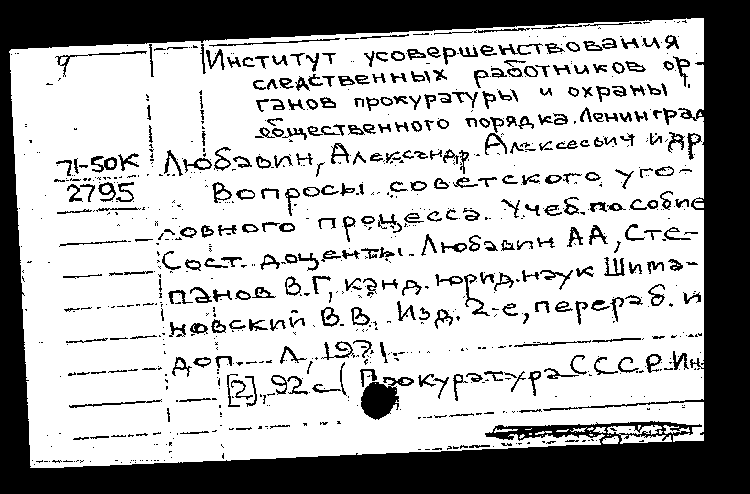 Институт усовершенствования
следственных работников ор-
ганов прокуратуры и охраны
общественного порядка. Ленинград
71-50К Любавин, Александр Алексеевич и др.
2795 Вопросы советского уго-
ловного процесса. Учеб. пособие
Сост. доценты Любавин АА, Сте-
панов В.Г, канд. юрид. наук Шима-
новский В.В. Изд. 2-е, перераб. и
доп. Л, 1971.
[2], 92 с (Прокуратура СССР Ин